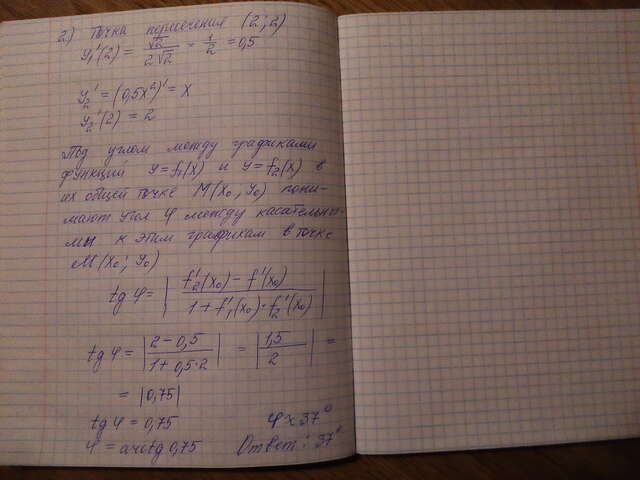 2) Точка пересечения (2; 2)
y₁'(2) = √2 / 2√2 = 1/2 = 0,5
y₂' = (0,5x²)' = x
y₂'(2) = 2
Под углом между графиками
функции y=f₁(x) и y=f₂(x) в
их общей точке M(x₀; y₀) пони-
мают угол φ между касательны-
ми к этим графикам в точке
M(x₀; y₀)
tg φ = | f₂'(x₀) - f'(x₀) / 1 + f₁'(x₀)·f₂'(x₀) |
tg φ = | 2 - 0,5 / 1 + 0,5·2 | = | 1,5 / 2 | =
= |0,75|
tg φ = 0,75 φ ≈ 37°
φ = arctg 0,75 Ответ: 37°